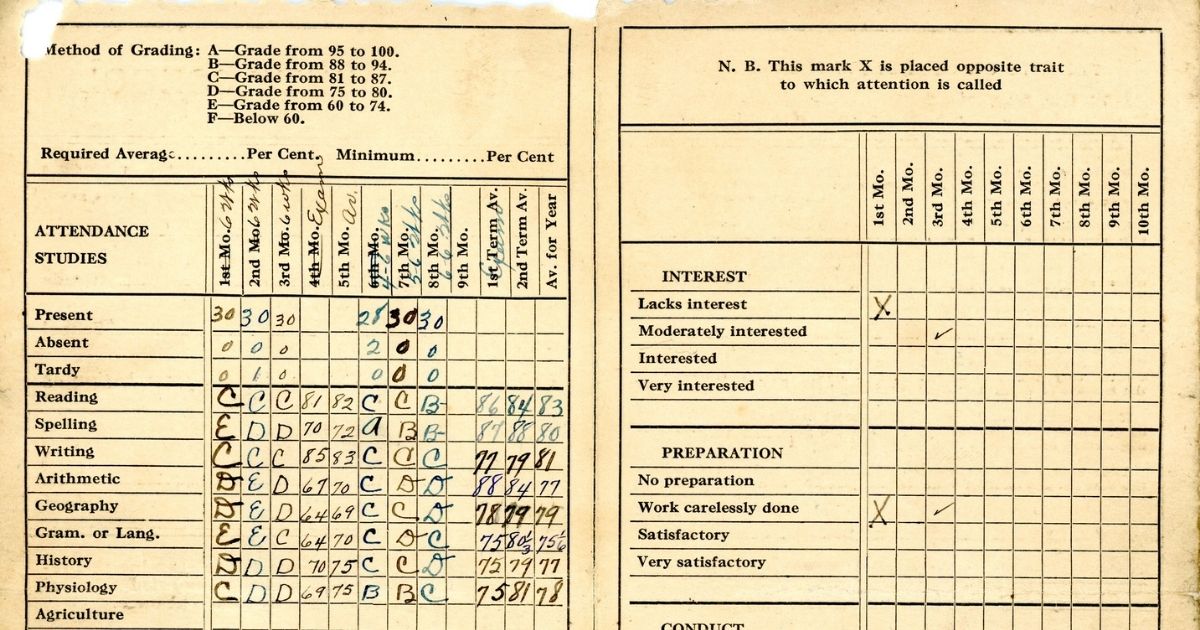 Method of Grading: A—Grade from 95 to 100.
B—Grade from 88 to 94.
C—Grade from 81 to 87.
D—Grade from 75 to 80.
E—Grade from 60 to 74.
F—Below 60.
Required Average.........Per Cent. Minimum.........Per Cent
ATTENDANCE
STUDIES
1st Mo. 6 wks
2nd Mo. 6 wks
3rd Mo. 6 wks
4th Mo. Exam.
5th Mo. Av.
6th Mo. 4-6 wks
7th Mo. 5-6 wks
8th Mo. 6 wks
9th Mo.
1st Term Av. Exam
2nd Term Av.
Av. for Year
Present 30 30 30 28 30 30
Absent 0 0 0 2 0 0
Tardy 0 1 0 0 0 0
Reading C C C 81 82 C C B 86 84 83
Spelling E D D 70 72 A B B 87 88 80
Writing C C C 85 83 C C C 77 79 81
Arithmetic D E D 67 70 C D D 88 84 77
Geography D E D 64 69 C C D 78 79 79
Gram. or Lang. E E C 64 70 C D C 75 80⅓ 75⅙
History D D D 70 75 C C D 75 79 77
Physiology C D D 69 75 B B C 75 81 78
Agriculture
N. B. This mark X is placed opposite trait
to which attention is called
1st Mo.
2nd Mo.
3rd Mo.
4th Mo.
5th Mo.
6th Mo.
7th Mo.
8th Mo.
9th Mo.
10th Mo.
INTEREST
Lacks interest X
Moderately interested ✓
Interested
Very interested
PREPARATION
No preparation
Work carelessly done X ✓
Satisfactory
Very satisfactory
CONDUCT